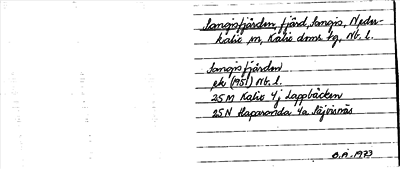 Sangisfjärden, fjärd, Sangis, Neder-
kalix sn, Kalix doms lg, Nb. l.
Sangisfjärden
ek (1951) Nb. l.
25M Kalix 4j Lappbäcken
25N Haparanda 4a Säivisnäs
B.Å. 1973